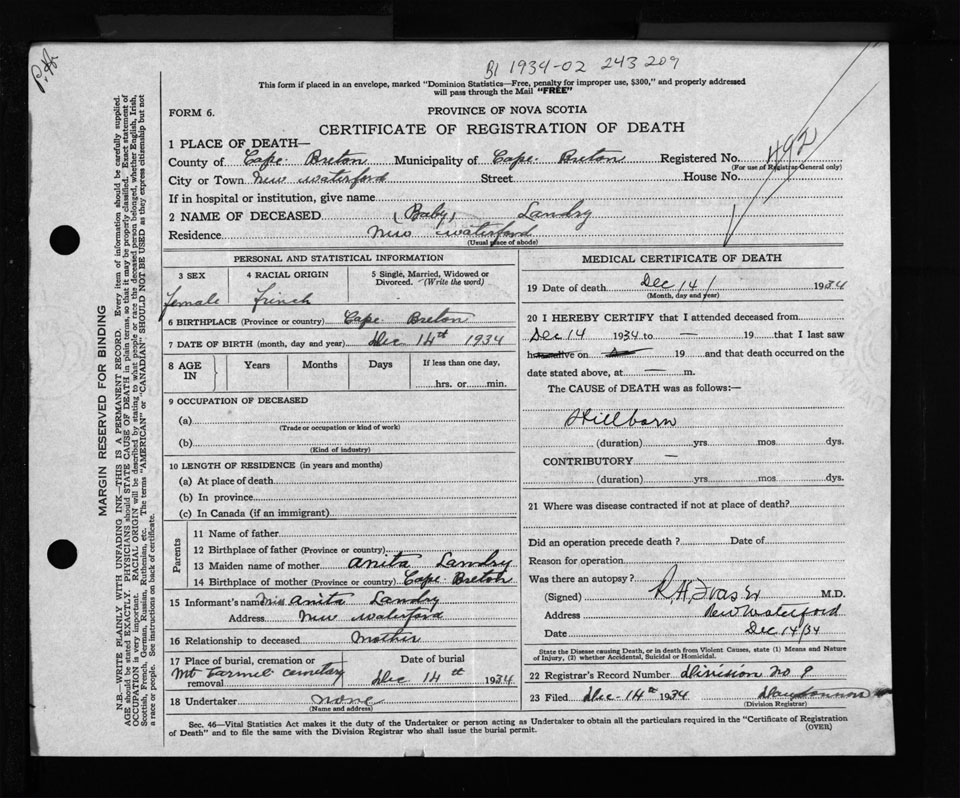 B1 1934-02 243 209
This form if placed in an envelope, marked "Dominion Statistics—Free, penalty for improper use, $300," and properly addressed
will pass through the Mail "FREE"
FORM 6.
PROVINCE OF NOVA SCOTIA
CERTIFICATE OF REGISTRATION OF DEATH
1 PLACE OF DEATH—
County of Cape Breton Municipality of Cape Breton Registered No. 492
(For use of Registrar General only)
City or Town New Waterford Street House No.
If in hospital or institution, give name
2 NAME OF DECEASED (Baby) Landry
Residence New Waterford
(Usual place of abode)
PERSONAL AND STATISTICAL INFORMATION
3 SEX 4 RACIAL ORIGIN 5 Single, Married, Widowed or
Divorced. (Write the word)
female French
6 BIRTHPLACE (Province or country) Cape Breton
7 DATE OF BIRTH (month, day and year) Dec 14th 1934
8 AGE IN Years Months Days If less than one day,
hrs. or min.
9 OCCUPATION OF DECEASED
(a)
(Trade or occupation or kind of work)
(b)
(Kind of industry)
10 LENGTH OF RESIDENCE (in years and months)
(a) At place of death
(b) In province
(c) In Canada (if an immigrant)
Parents
11 Name of father
12 Birthplace of father (Province or country)
13 Maiden name of mother Anita Landry
14 Birthplace of mother (Province or country) Cape Breton
15 Informant's name Miss Anita Landry
Address New Waterford
16 Relationship to deceased Mother
17 Place of burial, cremation or removal Date of burial
Mt Carmel Cemetary Dec 14th 1934
18 Undertaker none
(Name and address)
MEDICAL CERTIFICATE OF DEATH
19 Date of death Dec 14/ 1934
(Month, day and year)
20 I HEREBY CERTIFY that I attended deceased from
Dec 14 1934 to — 19 that I last saw
h alive on 19 and that death occurred on the
date stated above, at — m.
The CAUSE of DEATH was as follows:—
Stillborn
(duration) yrs mos dys.
CONTRIBUTORY —
(duration) yrs mos dys.
21 Where was disease contracted if not at place of death?
Did an operation precede death? Date of
Reason for operation
Was there an autopsy?
(Signed) R.H. Fraser M.D.
Address New Waterford
Date Dec 14/34
State the Disease causing Death, or in death from Violent Causes, state (1) Means and Nature
of Injury, (2) whether Accidental, Suicidal or Homicidal.
22 Registrar's Record Number Division No 9
23 Filed Dec 14th 1934
(Division Registrar)
Sec. 46—Vital Statistics Act makes it the duty of the Undertaker or person acting as Undertaker to obtain all the particulars required in the "Certificate of Registration
of Death" and to file the same with the Division Registrar who shall issue the burial permit.
(OVER)
MARGIN RESERVED FOR BINDING
N.B.—WRITE PLAINLY WITH UNFADING INK—THIS IS A PERMANENT RECORD. Every item of information should be carefully supplied.
AGE should be stated EXACTLY. PHYSICIANS should STATE CAUSE OF DEATH in plain terms, so that it may be properly classified. Exact statement of
OCCUPATION is very important. RACIAL ORIGIN will be described by stating to what people or race the deceased person belonged, whether English, Irish,
Scottish, French, German, Russian, Ruthenian, etc. The terms "AMERICAN" or "CANADIAN" SHOULD NOT BE USED as they express citizenship but not
a race or people. See instructions on back of certificate.